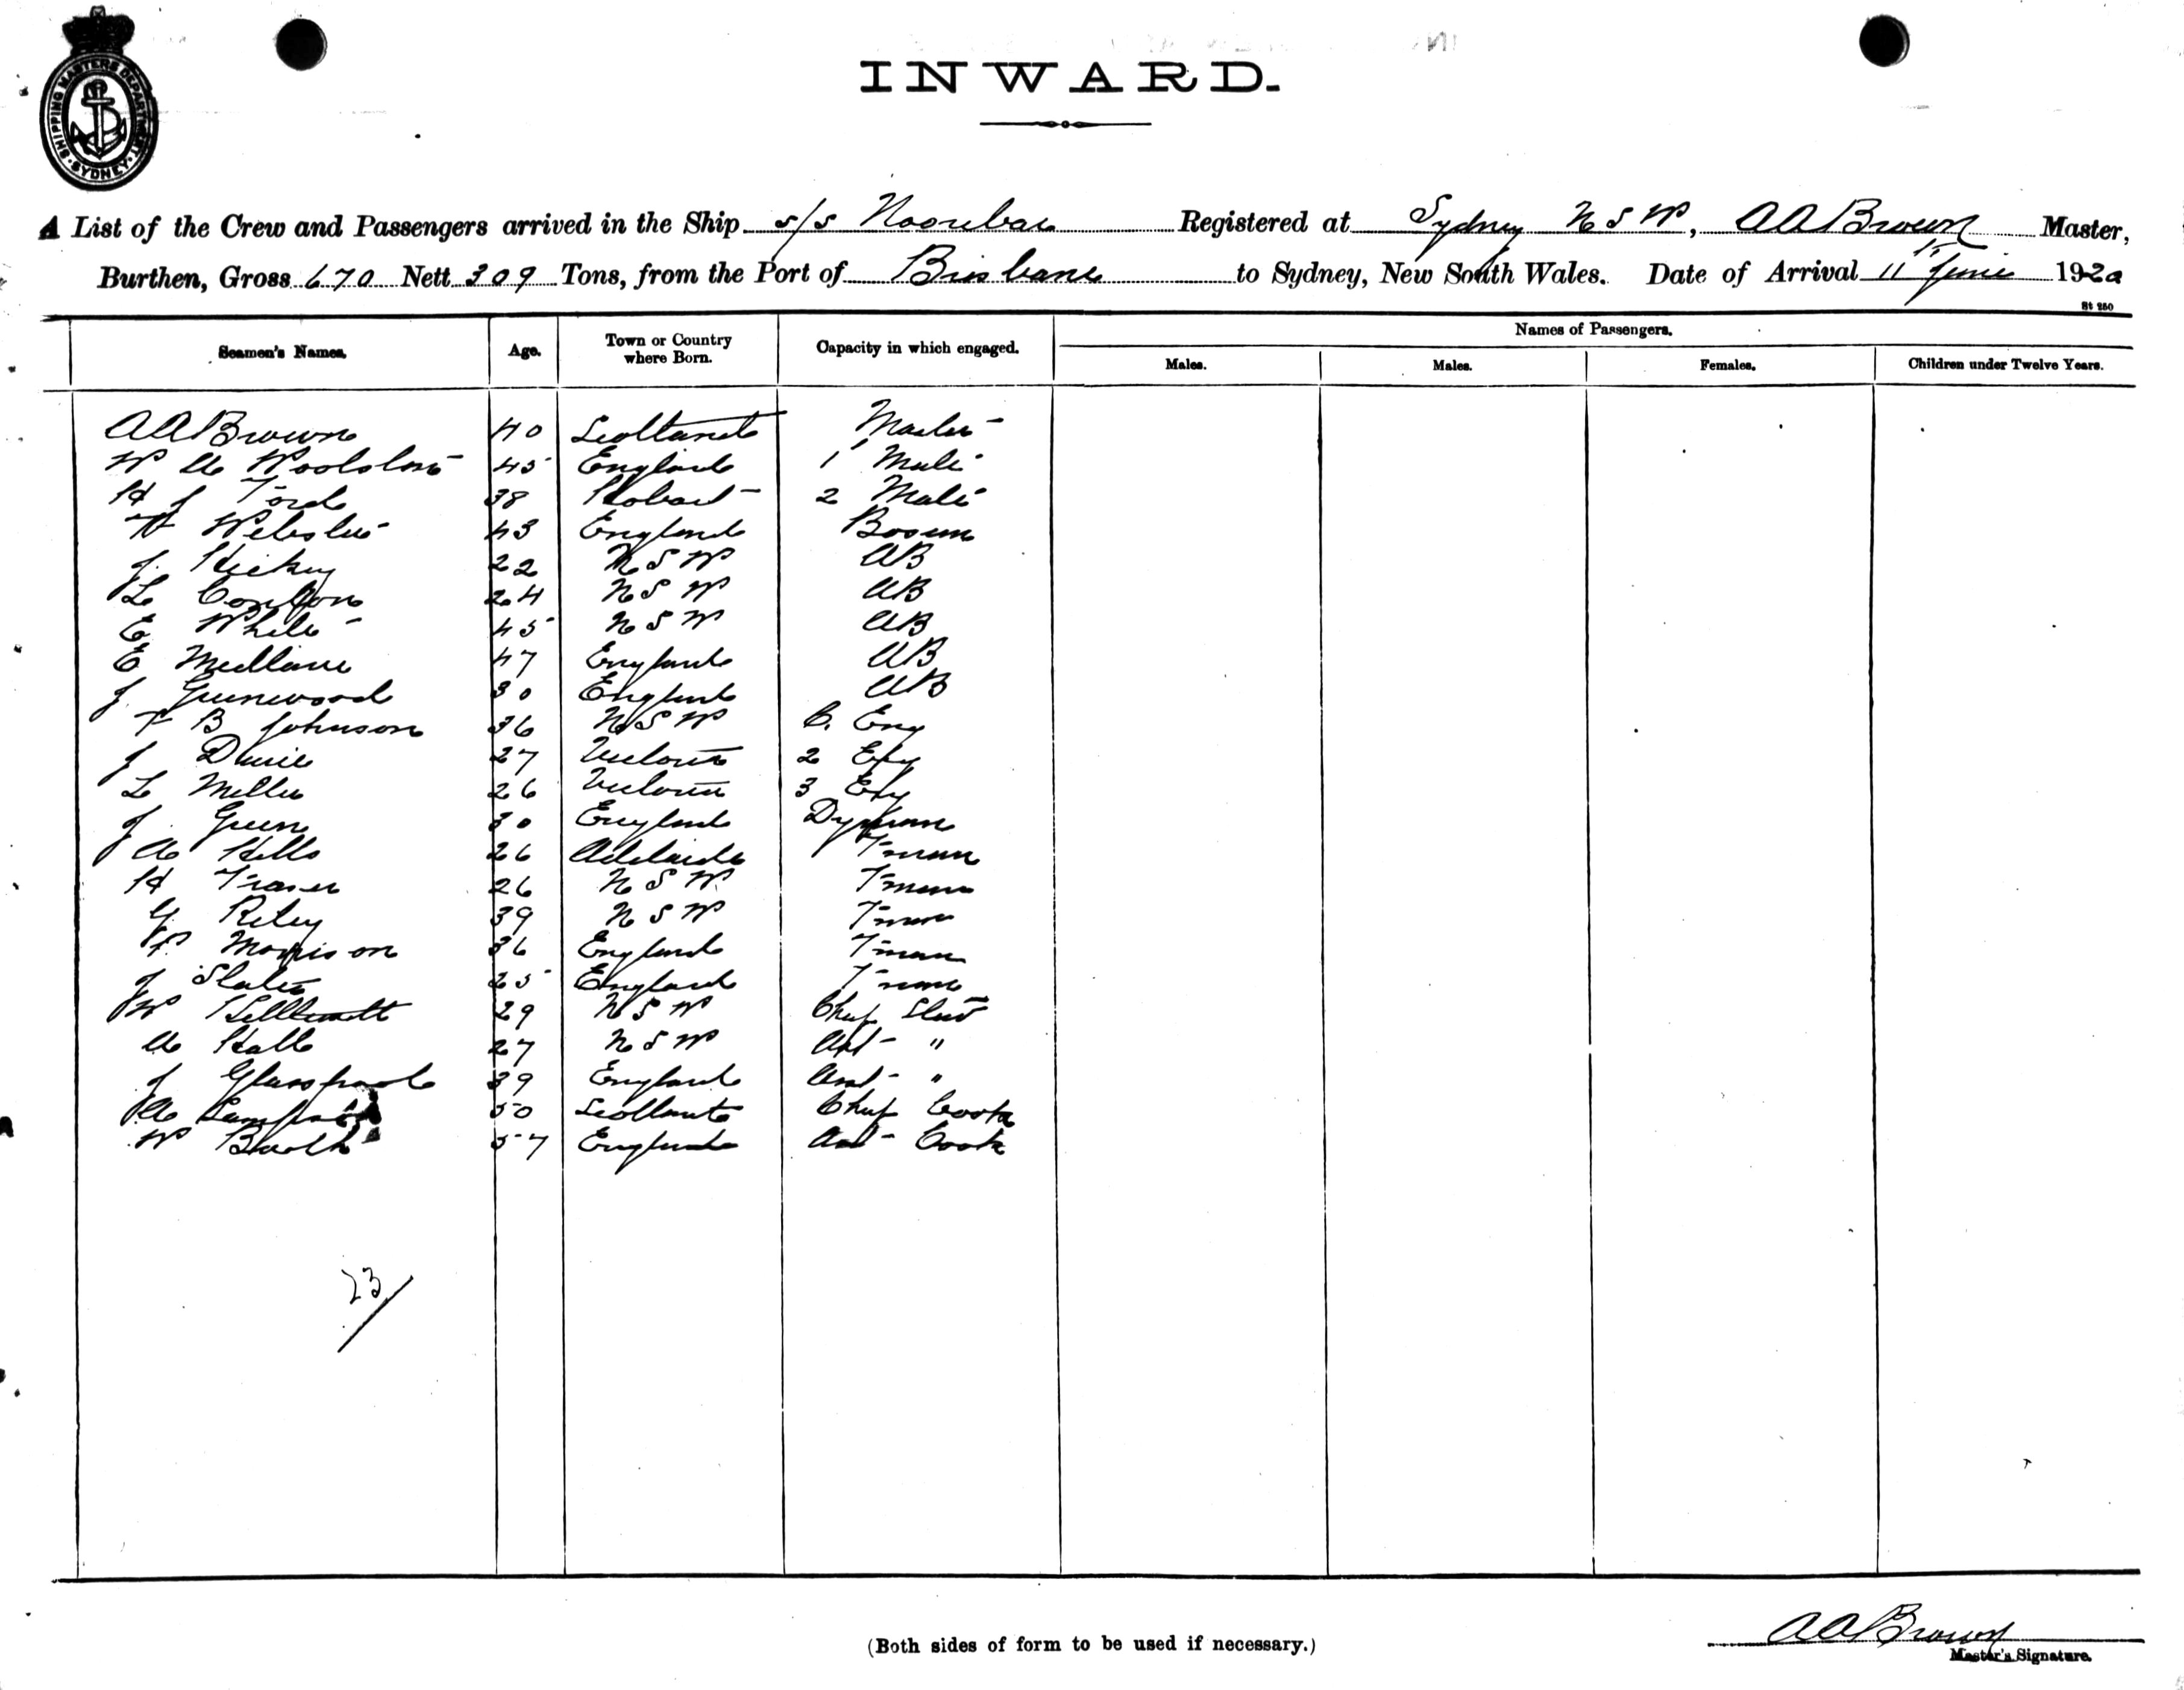 SHIPPING MASTERS DEPARTMENT SYDNEY
INWARD.
A List of the Crew and Passengers arrived in the Ship s/s Noorebar Registered at Sydney N S W, A A Brown Master,
Burthen, Gross 670 Nett 309 Tons, from the Port of Brisbane to Sydney, New South Wales. Date of Arrival 11 June 1920
St 250
Seamen's Names. Age. Town or Country where Born. Capacity in which engaged. Names of Passengers.
Males. Males. Females. Children under Twelve Years.
A A Brown 40 Scotland Master
W A Woolston 45 England 1 Mate
H J Ford 38 Hobart 2 Mate
H Webster 43 England Bosun
J Hickey 22 N S W AB
L Conlon 24 N S W AB
E White 45 N S W AB
E 47 England AB
J Greenwood 30 England AB
F B Johnson 36 N S W C. Eng
J 27 Victoria 2 Eng
L Miller 26 Victoria 3 Eng
J Green 30 England
A Hills 26 Adelaide Fman
H Fraser 26 N S W Fman
G Riley 39 N S W Fman
W Morrison 36 England Fman
J Slater 25 England Fman
W 29 N S W Chief Stwd
A Hall 27 N S W Ast "
J Glasspoole 39 England Asst "
A 50 Scotland Chief Cook
W Booth 57 England Asst Cook
23
(Both sides of form to be used if necessary.)
A A Brown
Master's Signature.